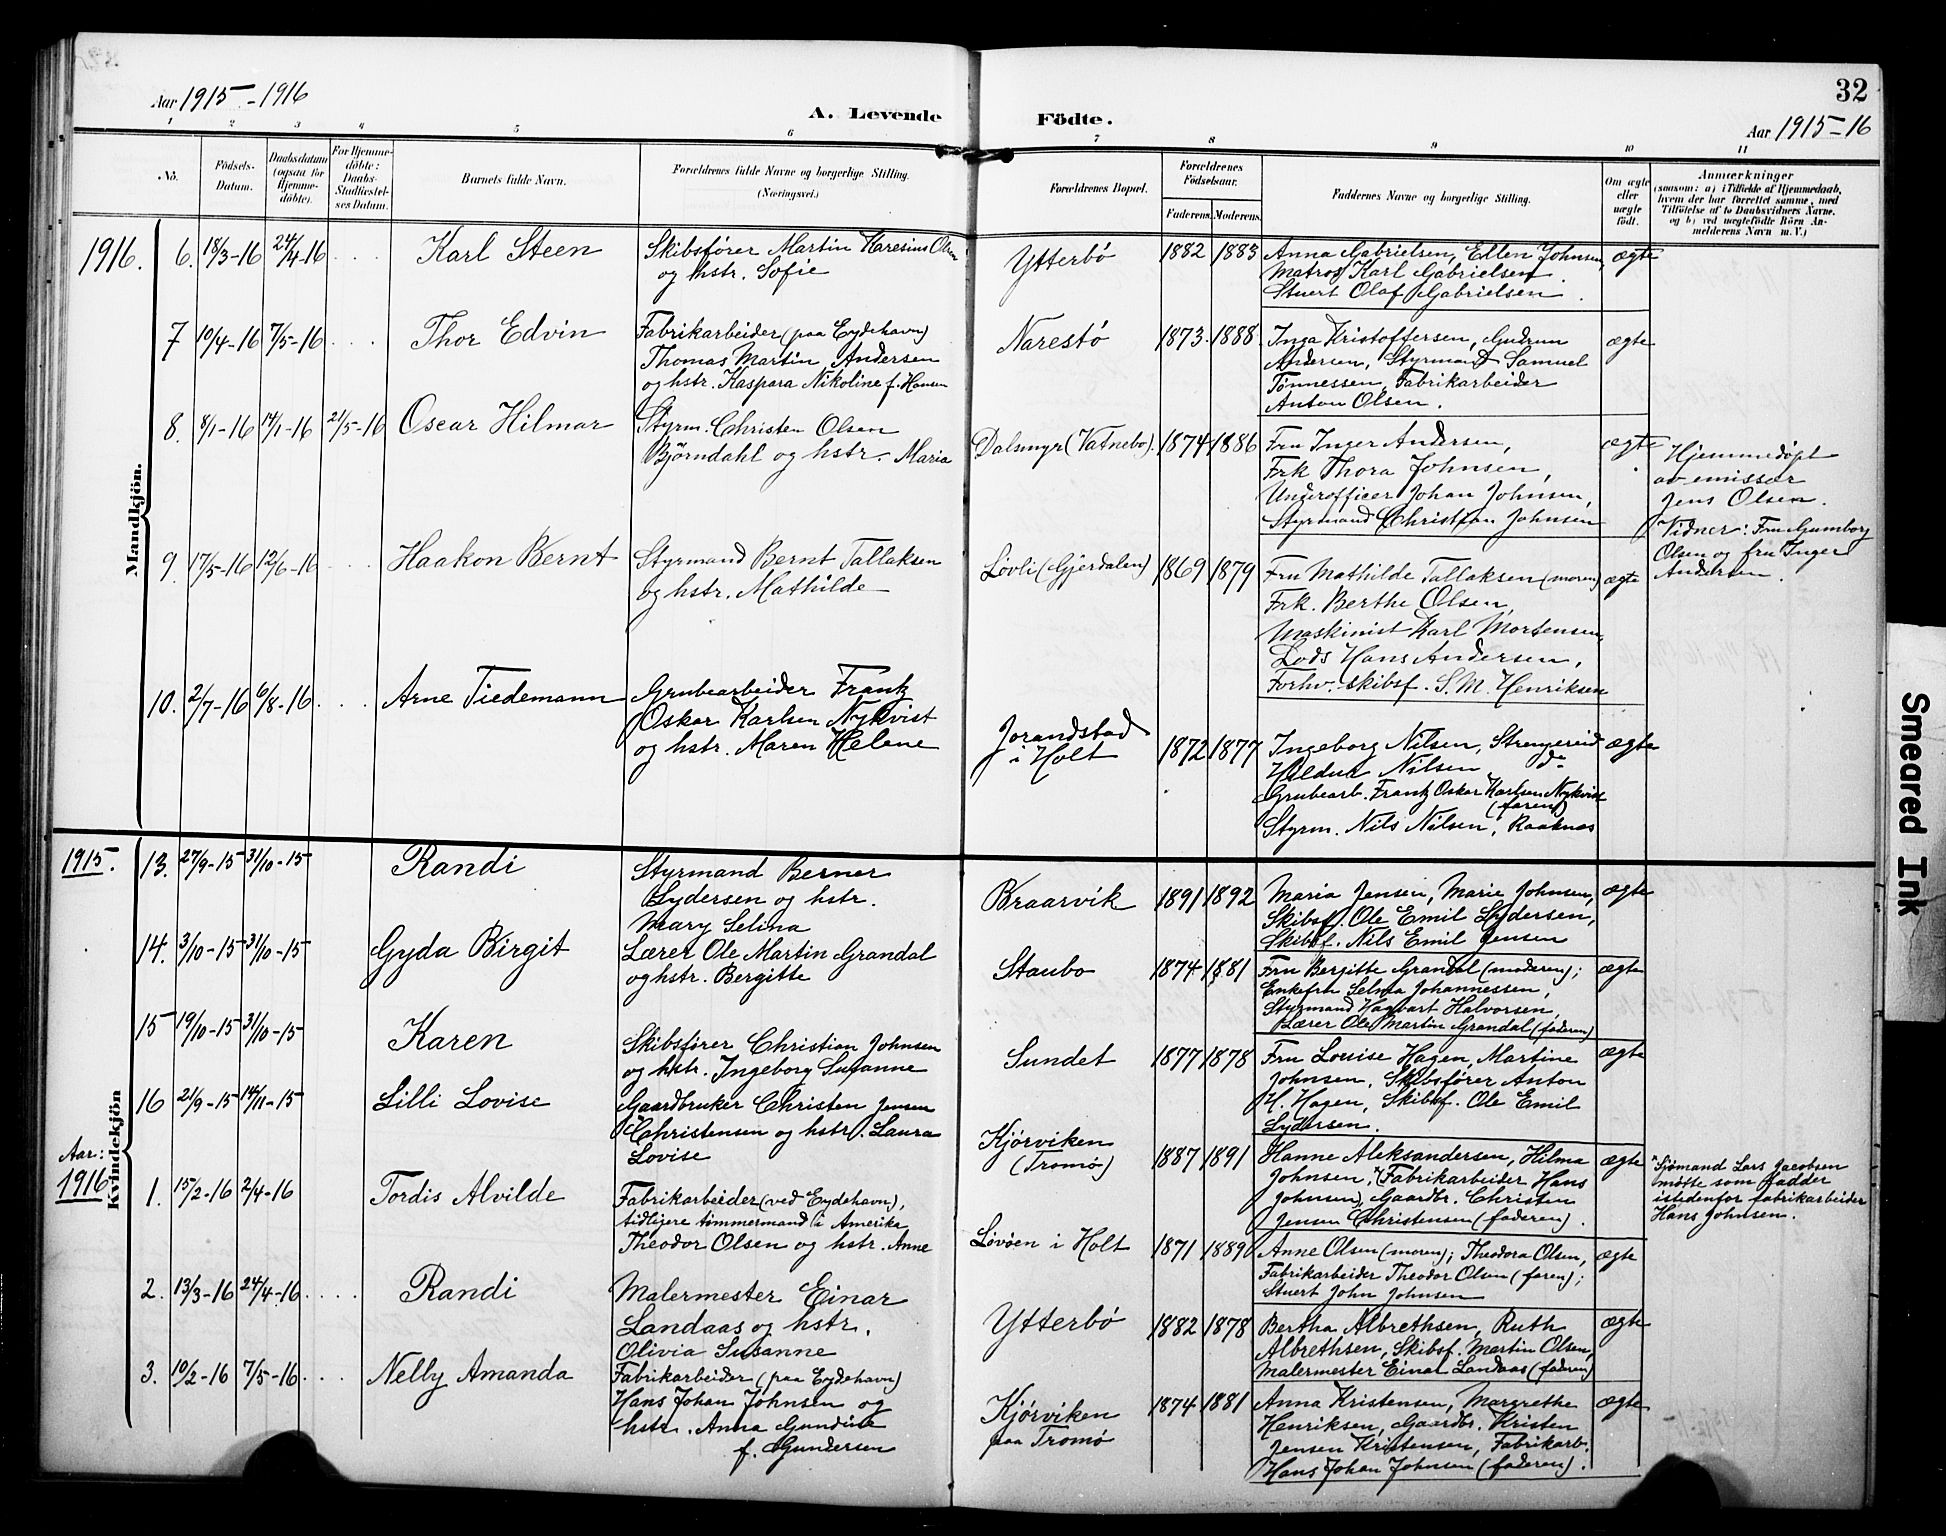 Aar 1915-1916
A. Levende
Födte.
32
Aar 1915-16
1 2 3 4 5 6 7 8 9 10 11
No.
Födsels-
Datum.
Daabsdatum
(ogsaa for
Hjemme-
döbte).
For Hjemme-
döbte:
Daabs-
Stadfæstel-
ses Datum.
Barnets fulde Navn.
Forældrenes fulde Navne og borgerlige Stilling.
(Næringsvei.)
Forældrenes Bopæl.
Forældrenes
Födselsaar.
Faderens. Moderens.
Faddernes Navne og borgerlige Stilling.
Om ægte
eller
uægte
födt.
Anmærkninger
(saasom: a) i Tilfælde af Hjemmedaab,
hvem der har forrettet samme, med
Tilföielse af to Daabsvidners Navne,
og b) ved uægtefödte Börn An-
melderens Navn m. V.)
Mandkjön.
1916. 6. 18/3-16 24/4-16 Karl Steen
Skibsfører Martin Karesius Olsen
og hstr. Sofie
Ytterbö 1882 1883
Anna Gabrielsen, Ellen Johnsen,
Matros Karl Gabrielsen
Stuert Olaf Gabrielsen.
ægte
7 10/4-16 7/5-16 Thor Edvin
Fabrikarbeider (paa Eydehavn)
Thomas Martin Andersen
og hstr. Kaspara Nikoline f. Hansen
Narestö 1873 1888
Inga Kristoffersen, Gudrun
Andersen, Styrmand Samuel
Tönnessen, Fabrikarbeider
Anton Olsen.
ægte
8. 8/1-16 14/1-16 21/5-16 Oscar Hilmar
Styrm. Christen Olsen
Björndahl og hstr. Maria
Dalsmyr (Vatnebo). 1874 1886
Fru Inger Andersen,
Frk Thora Johnsen,
Underofficer Johan Johnsen,
Styrmand Christian Johnsen
ægte
Hjemmedöpt
av emissær
Jens Olsen.
Vidner: Fru Gumborg
Olsen og fru Inger
Andersen.
9. 17/5-16 12/6-16 Haakon Bernt
Styrmand Bernt Tallaksen
og hstr. Mathilde
Lövli (Gjerdalen) 1869 1879
Fru Mathilde Tallaksen (moren)
Frk. Berthe Olsen,
Maskinist Karl Mortensen,
Lods Hans Andersen,
Forhv. skibsf. S. M. Henriksen
ægte
10. 2/7-16 6/8-16 Arne Tiedemann
Grubearbeider Frantz
Oskar Karlsen Nykvist
og hstr. Maren Helene
Jorandstad
i Holt 1872 1877
Ingeborg Nilsen, Strengereid
Hildur Nilsen do
Grubearb. Frantz Oskar Karlsen Nykvist
(faren)
Styrm. Nils Nilsen, Raaknes
ægte
Kvindekjön
1915. 13. 27/9-15 31/10-15 Randi
Styrmand Berner
Lydersen og hstr.
Mary Selina
Braarvik 1891 1892
Maria Jensen, Marie Johnsen,
Skibsf. Ole Emil Lydersen,
Skibsf. Nils Emil Jensen
ægte
14. 3/10-15 31/10-15 Gyda Birgit
Lærer Ole Martin Grandal
og hstr. Bergitte
Staubo 1874 1881
Fru Bergitte Grandal (moderen);
Enkefru Selma Johannessen,
Styrmand Hagbart Halvorsen,
Lærer Ole Martin Grandal (faderen)
ægte
15 19/10-15 31/10-15 Karen
Skibsfører Christian Johnsen
og hstr. Ingeborg Susanne
Sundet 1877 1878
Fru Louise Hagen, Martine
Johnsen, Skibsfører Anton
H. Hagen, Skibsf. Ole Emil
Lydersen.
ægte
16 21/9-15 14/11-15 Lilli Lovise
Gaardbruker Christen Jensen
Christensen og hstr. Laura
Lovise
Kjörviken
(Tromö) 1887 1891
Hanne Aleksandersen, Hilma
Johnsen, *(Fabrikarbeider Hans
Johnsen), Gaardbr. Christen
Jensen Christensen (faderen).
ægte
*Sjömand Lars Jacobsen
mötte som fadder
istedenfor fabrikarbeider
Hans Johnsen.
Aar:
1916 1. 15/2-16 2/4-16 Tordis Alvilde
Fabrikarbeider (ved Eydehavn),
tidligere tömmermand i Amerika,
Theodor Olsen og hstr. Anne
Lövöen i Holt 1871 1889
Anne Olsen (moren); Theodora Olsen,
Fabrikarbeider Theodor Olsen (faren);
Stuert John Johnsen
ægte
2. 13/3-16 24/4-16 Randi
Malermester Einar
Landaas og hstr.
Olivia Susanne
Ytterbö 1882 1878
Bertha Albrethsen, Ruth
Albrethsen, Skibsf. Martin Olsen,
Malermester Einar Landaas (faderen)
ægte
3. 10/2-16 7/5-16 Nelly Amanda
Fabrikarbeider (paa Eydehavn)
Hans Johan Johnsen og
hstr. Anna Gundine
f. Gundersen
Kjörviken
paa Tromö 1874 1881
Anna Kristensen, Margrethe
Henriksen, Gaardbr. Kristen
Jensen Kristensen, Fabrikarb.
Hans Johan Johnsen (faderen).
ægte
Smeared Ink